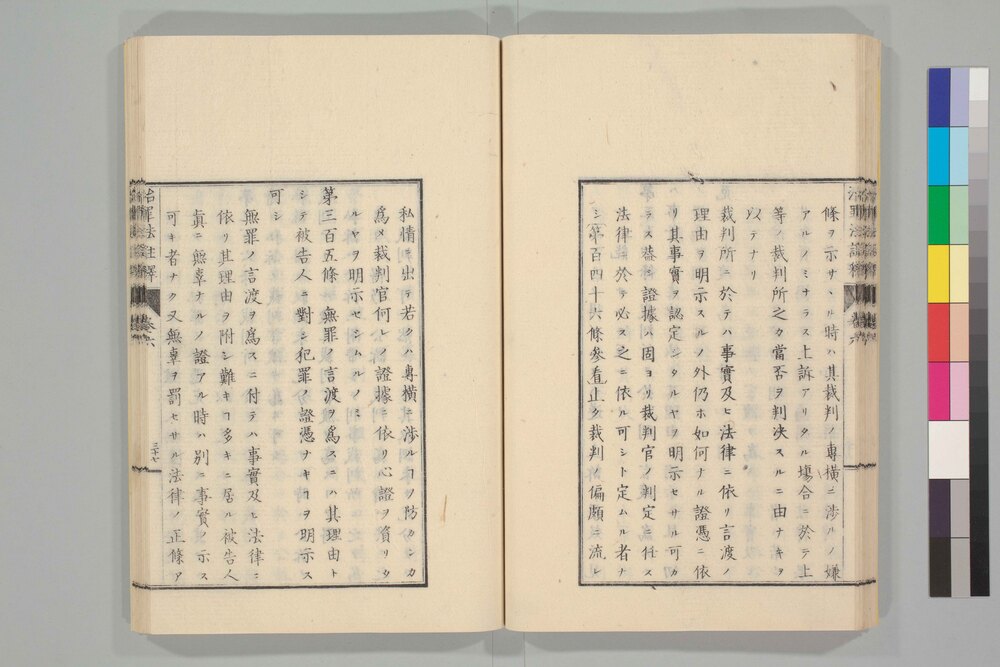 條ヲ示サヽル時ハ其裁判ノ專橫ニ涉ルノ嫌
アルノミナラス上訴アリタル塲合ニ於テ上
等ノ裁判所之カ當否ヲ判决スルニ由ナキヲ
以テナリ
裁判所ニ於テハ事實及ヒ法律ニ依リ言渡ノ
理由ヲ明示スルノ外仍ホ如何ナル證憑ニ依
リ其事實ヲ認定シタルヤヲ明示セサル可カ
ラス蓋シ證據ハ固ヨリ裁判官ノ判定ニ任ス
法律ニ於テ必ス之ニ依ル可シト定ムル者ナ
シ第百四十六條參看止タ裁判ノ偏頗ニ流レ
私情ニ出テ若クハ專橫ニ涉ルヿヲ防カンカ
爲メ裁判官何レノ證據ニ依リ心證ヲ資リタ
ルヤヲ明示セシムルノミ
第三百五條 無罪ノ言渡ヲ爲スニハ其理由ト
シテ被告人ニ對シ犯罪ノ證憑ナキヿヲ明示ス
可シ
無罪ノ言渡ヲ爲スニ付テハ事實及ヒ法律ニ
依リ其理由ヲ附シ難キヿ多キニ居ル被告人
眞ニ無辜ナルノ證アル時ハ別ニ事實ノ示ス
可キ者ナク又無辜ヲ罰セサル法律ノ正條ア
治罪法註釋 卷六